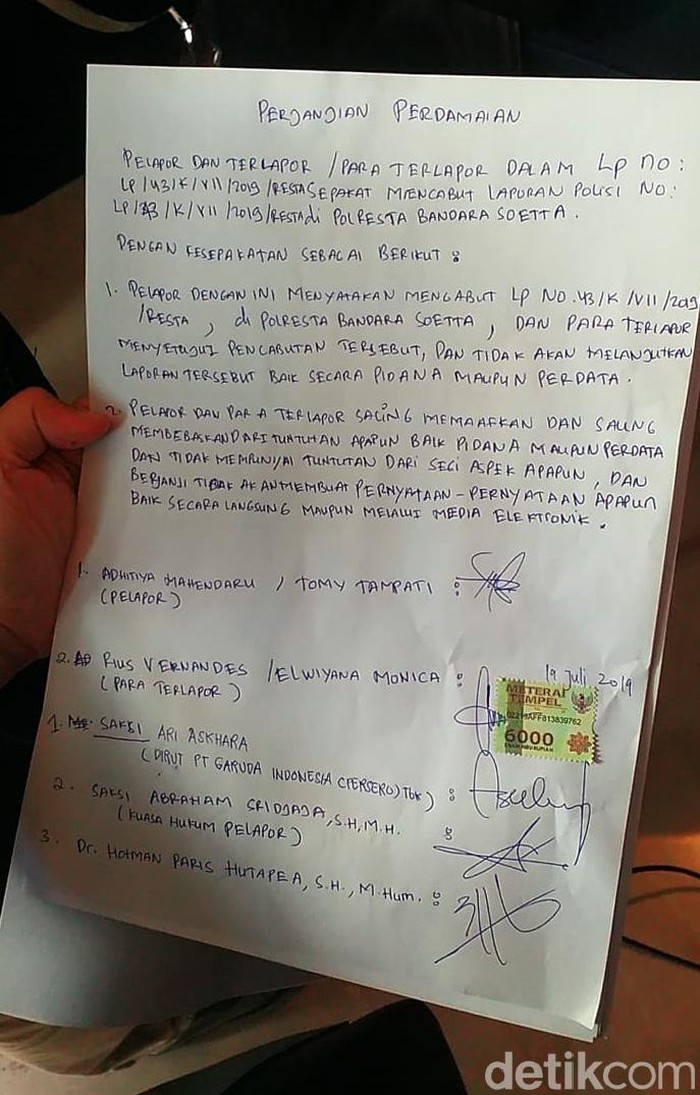 PERJANJIAN PERDAMAIAN
PELAPOR DAN TERLAPOR /PARA TERLAPOR DALAM LP NO:
LP/43/K/VII/2019/RESTA SEPAKAT MENCABUT LAPORAN POLISI NO:
LP/43/K/VII/2019/RESTA di POLRESTA BANDARA SOETTA.
DENGAN KESEPAKATAN SEBAGAI BERIKUT :
1. PELAPOR DENGAN INI MENYATAKAN MENCABUT LP NO.43/K/VII/2019
/RESTA, di POLRESTA BANDARA SOETTA, DAN PARA TERLAPOR
MENYETUJUI PENCABUTAN TERSEBUT, DAN TIDAK AKAN MELANJUTKAN
LAPORAN TERSEBUT BAIK SECARA PIDANA MAUPUN PERDATA.
2. PELAPOR DAN PARA TERLAPOR SALING MEMAAFKAN DAN SALING
MEMBEBASKAN DARI TUNTUTAN APAPUN BAIK PIDANA MAUPUN PERDATA
DAN TIDAK MEMPUNYAI TUNTUTAN DARI SEGI ASPEK APAPUN, DAN
BERJANJI TIDAK AKAN MEMBUAT PERNYATAAN-PERNYATAAN APAPUN
BAIK SECARA LANGSUNG MAUPUN MELALUI MEDIA ELEKTRONIK.
1. ADHITIYA MAHENDARU / TOMY TAMPATI :
(PELAPOR)
19 Juli 2019
2. RIUS VERNANDES /ELWIYANA MONICA :
(PARA TERLAPOR)
METERAI
TEMPEL
02218AFF813839762
6000
ENAM RIBU RUPIAH
1. SAKSI ARI ASKHARA
(DIRUT PT GARUDA INDONESIA (PERSERO) Tbk) :
2. SAKSI ABRAHAM SRIDJAJA, S.H, M.H. :
(KUASA HUKUM PELAPOR)
3. Dr. HOTMAN PARIS HUTAPEA, S.H., M.Hum. :
detikcom